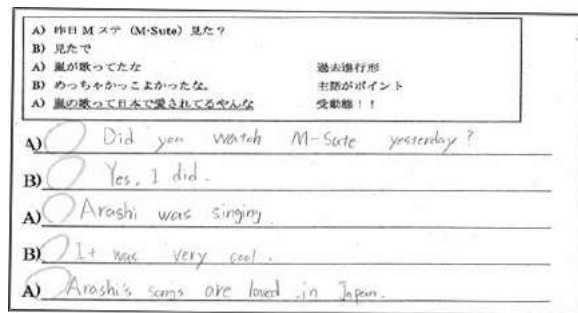 A) 昨日Mステ (M-Sute) 見た?
B) 見たで
A) 嵐が歌ってたな 過去進行形
B) めっちゃかっこよかったな。 主語がポイント
A) 嵐の歌って日本で愛されてるやんな 受動態!!
A) Did you watch M-Sute yesterday?
B) Yes, I did.
A) Arashi was singing
B) It was very cool.
A) Arashi's songs are loved in Japan.